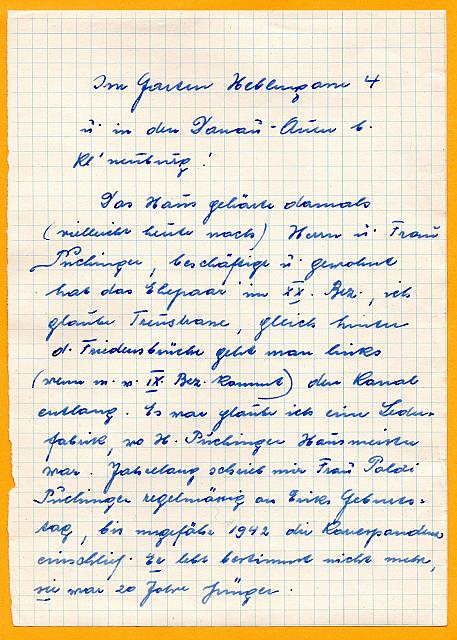 Im Garten Heblergasse 4
u. in den Donau-Auen b.
Kl'neuburg!
Das Haus gehörte damals
(vielleicht heute noch) Herrn u. Frau
Püchinger, beschäftigt u. gewohnt
hat das Ehepaar im XX. Bez., ich
glaube Treustrasse, gleich hinter
d. Friedensbrücke geht man links
(wenn m. v. IX. Bez. kommt) den Kanal
entlang. Es war glaube ich eine Leder-
fabrik, wo H. Püchinger Hausmeister
war. Jahrelang schrieb mir Frau Poldi
Püchinger regelmäßig an Eriks Geburts-
tag, bis ungefähr 1942 die Korrespondenz
einschlief. Er lebt bestimmt nicht mehr,
sie war 20 Jahre jünger.